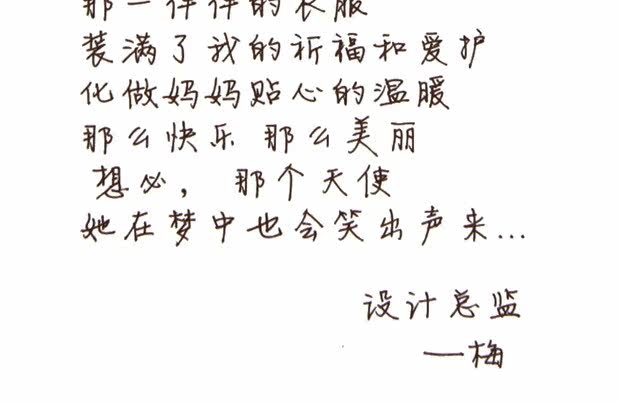 那一件件的衣服
装满了我的祈福和爱护
化做妈妈贴心的温暖
那么快乐 那么美丽
想必, 那个天使
她在梦中也会笑出声来...
设计总监
一梅